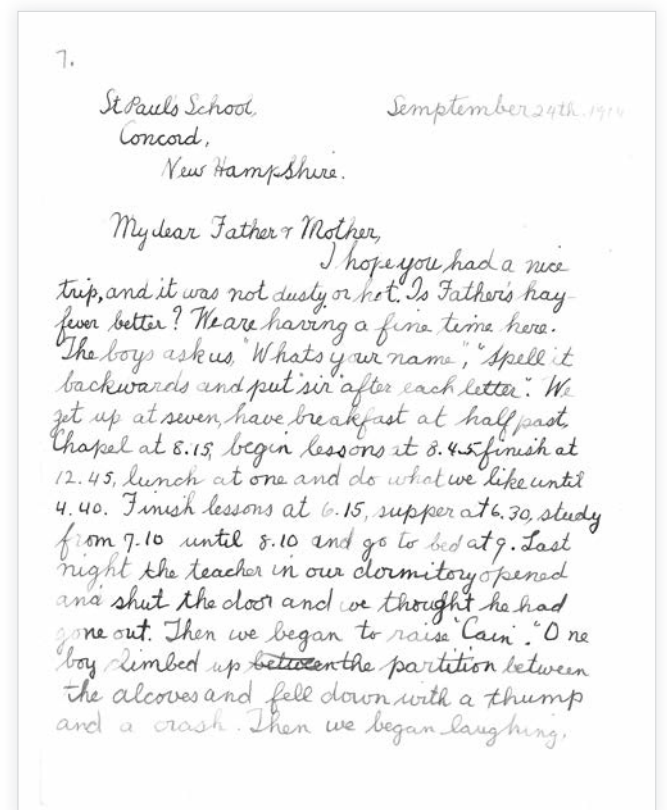 7.
St Paul's School, Semptember 24th. 1914
Concord,
New Hampshire.
My dear Father & Mother,
I hope you had a nice
trip, and it was not dusty or hot. Is Father's hay-
fever better? We are having a fine time here.
The boys ask us, "Whats your name", "Spell it
backwards and put "sir" after each letter". We
get up at seven, have breakfast at half past,
Chapel at 8.15, begin lessons at 8.45 finish at
12.45, lunch at one and do what we like until
4.40. Finish lessons at 6.15, supper at 6.30, study
from 7.10 until 8.10 and go to bed at 9. Last
night the teacher in our dormitory opened
and shut the door and we thought he had
gone out. Then we began to raise "Cain". "One
boy climbed up between the partition between
the alcoves and fell down with a thump
and a crash. Then we began laughing.